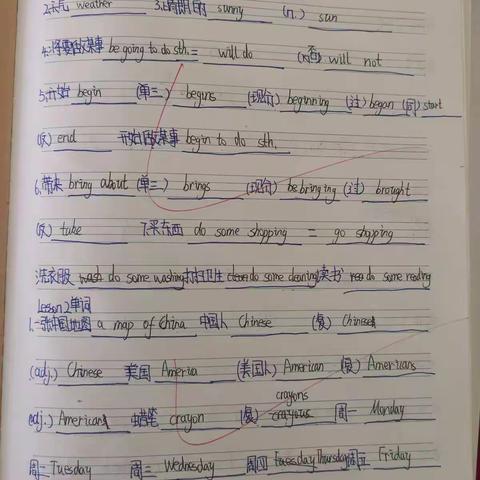 2.天气 weather 3.晴朗的 sunny (n.) sun
4.将要做某事 be going to do sth. = will do (否) will not
5.开始 begin (单三) begins (现分) beginning (过) began (同) start
(反) end 开始做某事 begin to do sth.
6.带来 bring about (单三) brings (现分) be bringing (过) brought
(反) take 7.买东西 do some shopping = go shopping
洗衣服 wash do some washing 打扫卫生 do some cleaning 读书 read do some reading
Lesson2单词
1.一张中国地图 a map of China 中国人 Chinese (复) Chinese
(adj.) Chinese 美国 America (美国人) American (复) Americans
crayons
(adj.) American 蜡笔 crayon (复) crayous 周一 Monday
周二 Tuesday 周三 Wednesday 周四 Tuesday Thursday 周五 Friday